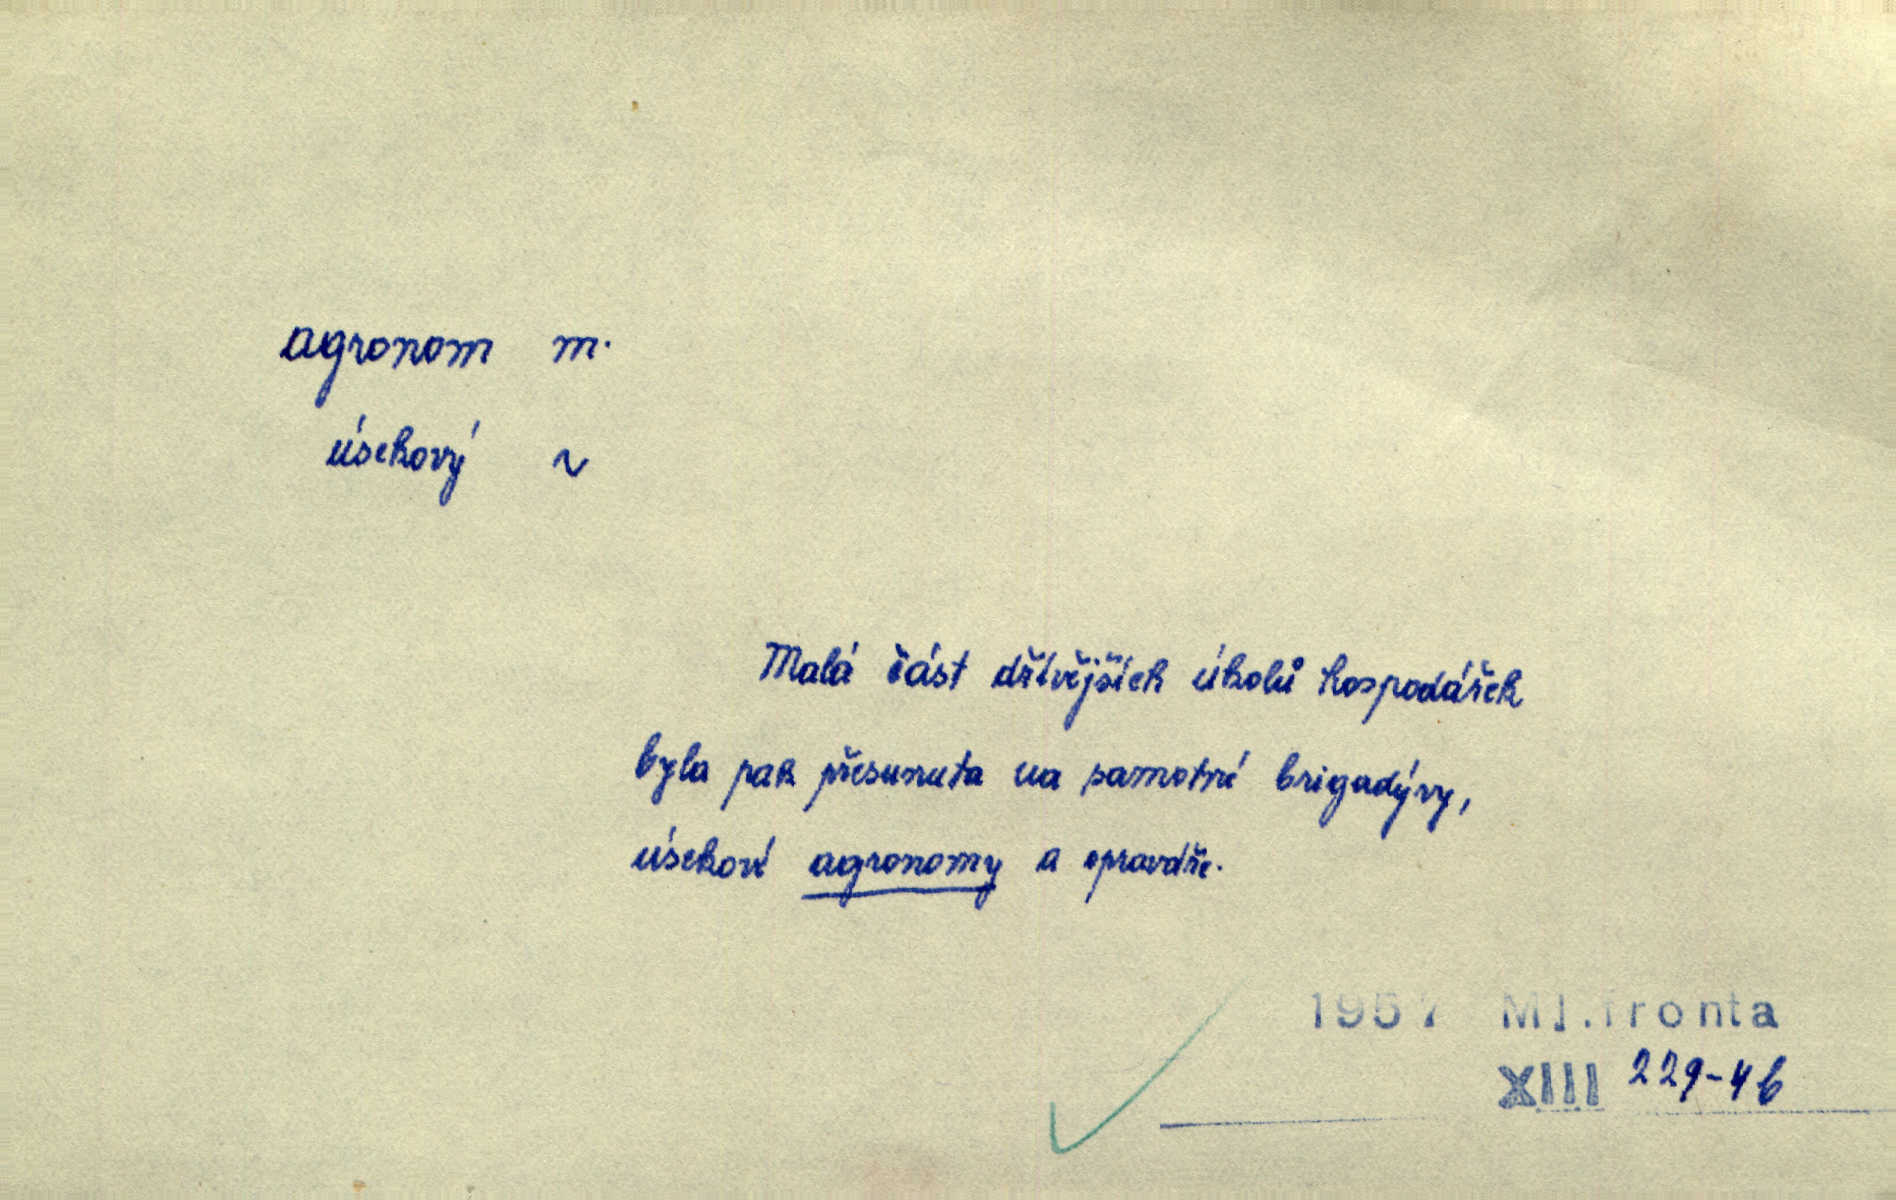 agronom m.
úsekový ~
Malá část dřívějších úkolů hospodářek
byla pak přesunuta na samotné brigadýry,
úsekové agronomy a opraváře.
1957 Ml.fronta
XIII 229-4b